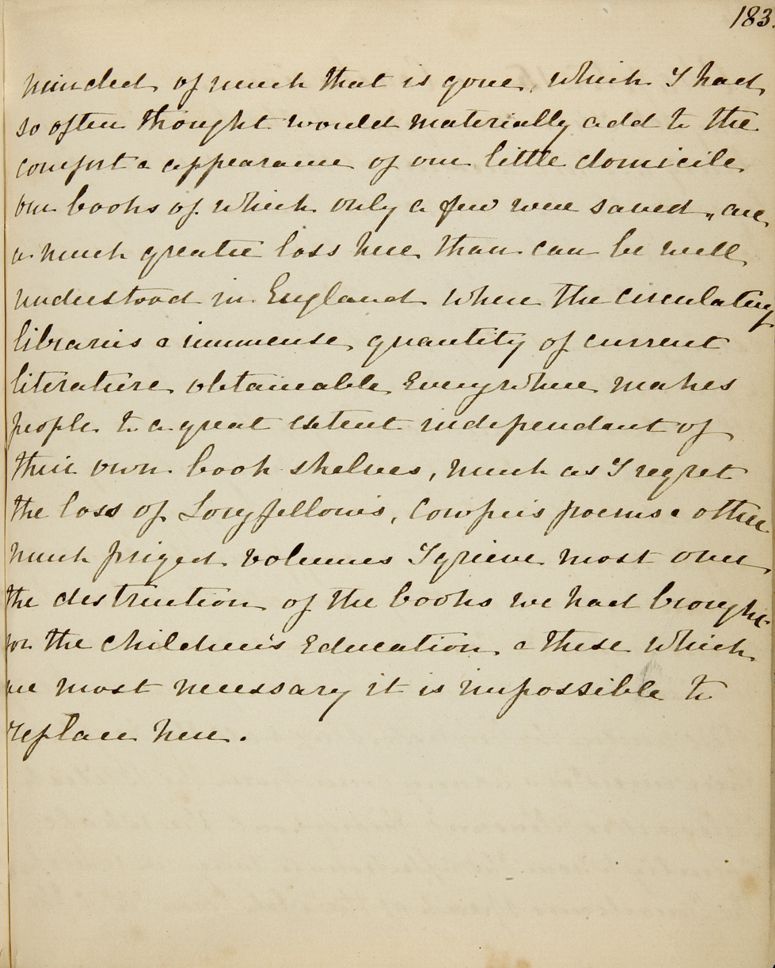 183.
minded of much that is gone, which I had
so often thought would materially add to the
comfort & appearance of our little domicile
our books of which only a few were saved, are
a much greater loss here than can be well
understood in England where the circulating
libraries & immense quantity of current
literature obtainable everywhere makes
people to a great extent independant of
their own book shelves, much as I regret
the loss of Longfellow's, Cowper's poems & other
much prized volumes I grieve most over
the destruction of the books we had brought
for the children's Education & these which
are most necessary it is impossible to
replace here.